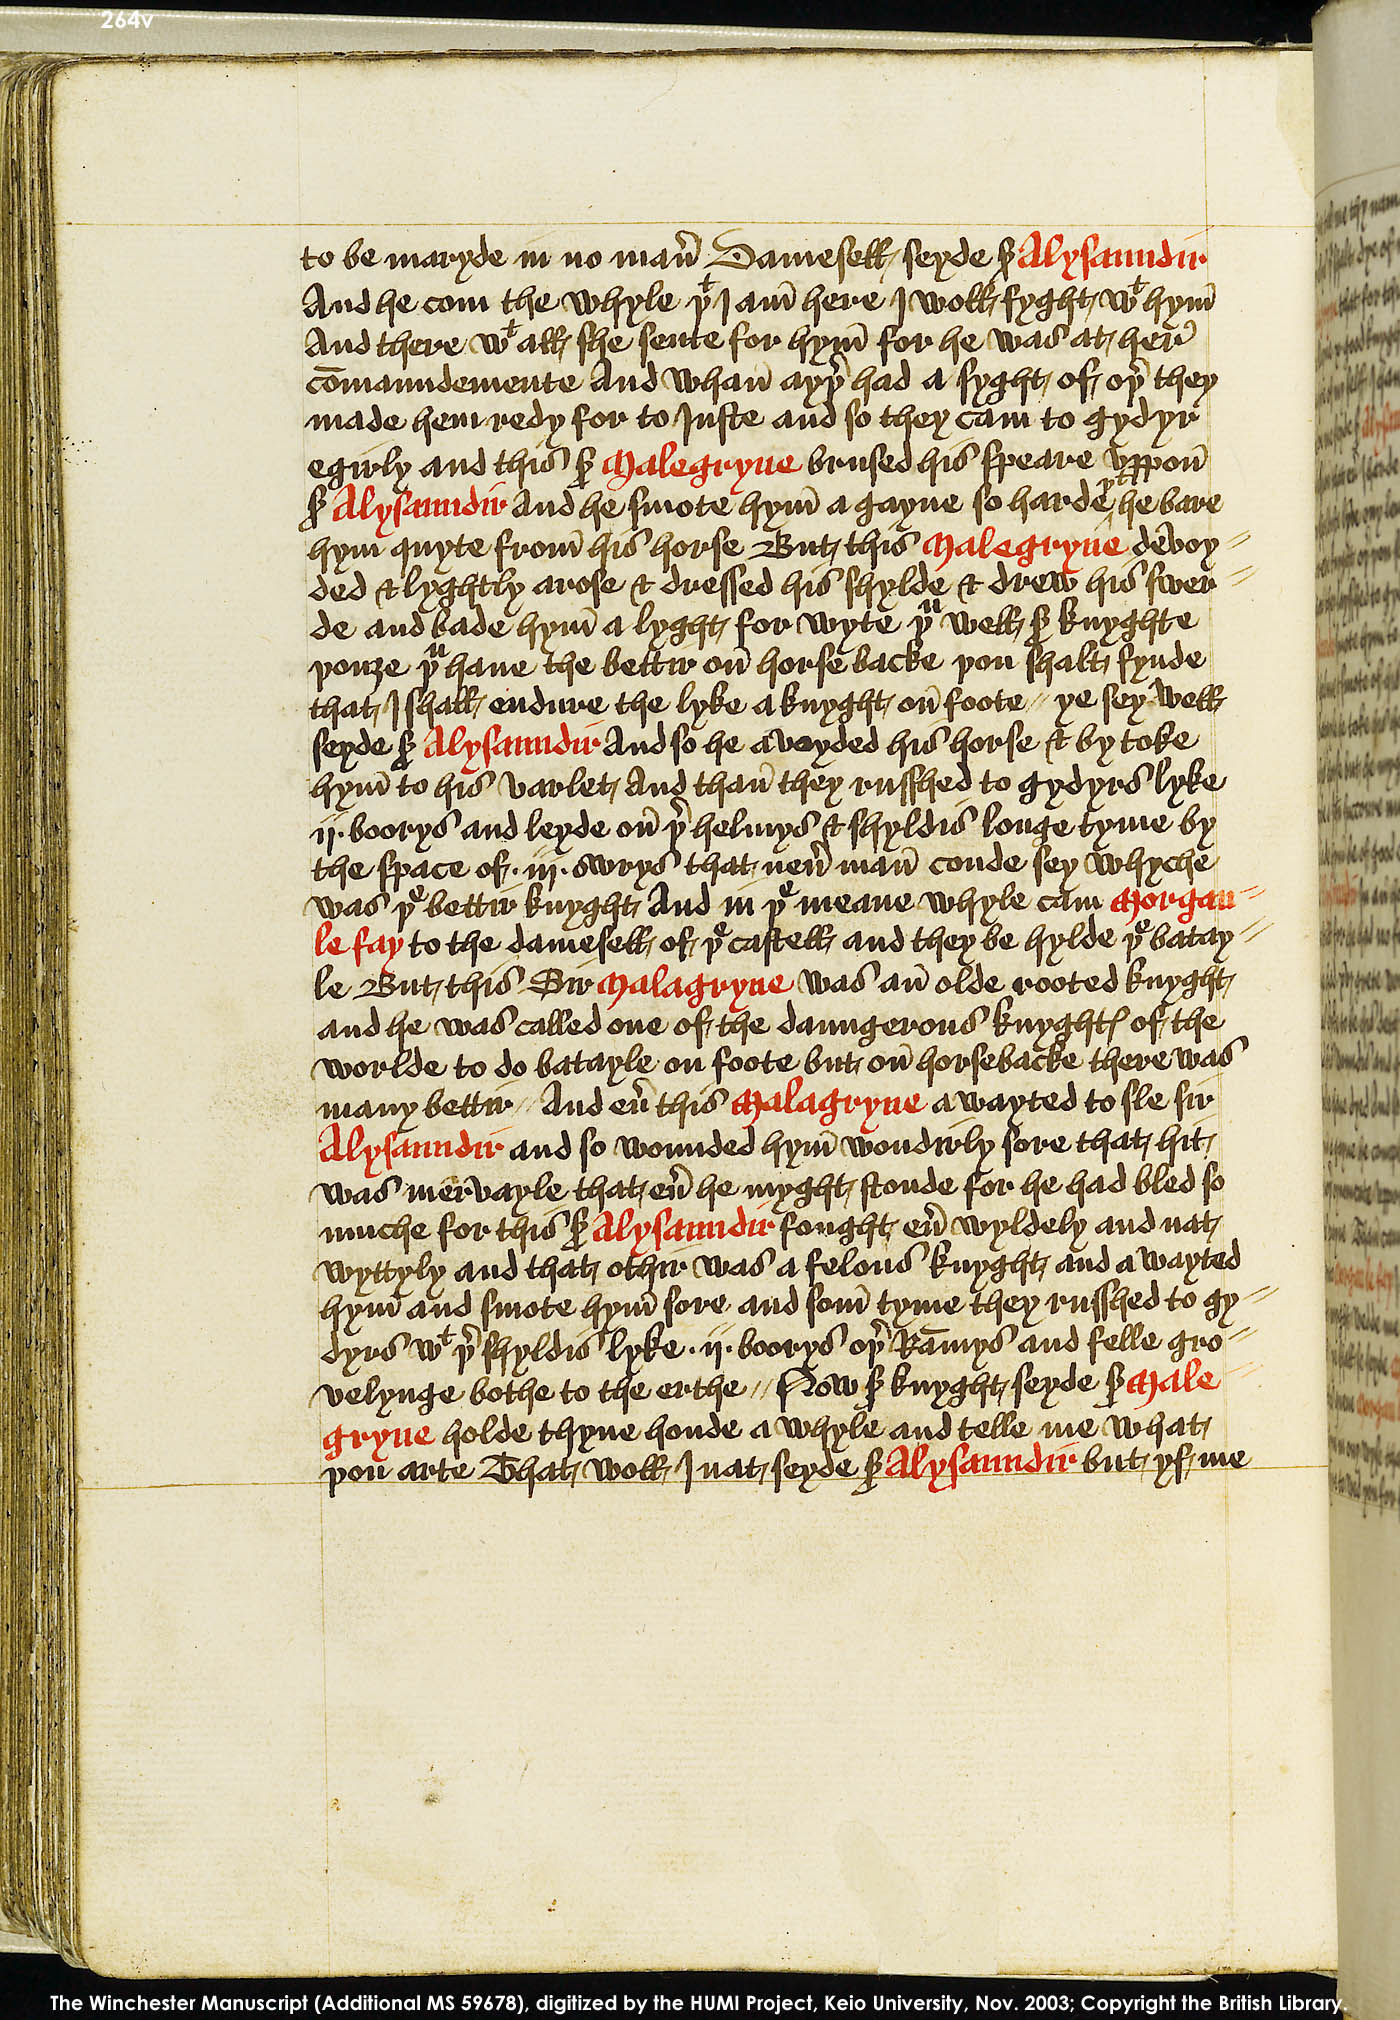 264v
to be maryde in no man̄ Damesell seyde sꝛ Alysaundir
And he com the whyle þᵗ I am̄ here I woll fyght wᵗ hym̄
And there wᵗ all she sente for hym̄ for he was at her̄
cōmaundemente And whan̄ ayþ̄ had a syght of oþ̄ they
made hem redy for to Juste and so they cam to gydyr
egirly and this sꝛ Malegryne brused his speare vppon̄
sꝛ Alysaundir And he smote hym̄ a gayne so harde þᵗ he bare
hym quyte from̄ his horse But this Malegryne dēvoy
ded & lyghtly arose & dressed his shylde & drew his swer
de and bade hym̄ a lyght for wyte þᵘ well sꝛ knyghte
þouȝe þᵘ haue the bettir on̄ horse backe þou shalt fynde
that I shall endure the lyke a knyght on̄ foote // ye sey well
seyde sꝛ Alysaundir And so he avoyded his horse & by toke
hym̄ to his varlet And than̄ they russhed to gydyrs lyke
ij· boorys and leyde on̄ þ̄ helmys & shyldis longe tyme by
the space of ·iij· owrys that nev̄ man̄ coude sey whyche
was þᵉ bettir knyght And in þᵉ meane whyle cam Morgan
le fay to the damesell of þᵉ castell and they be hylde þᵉ batay
le But this Sir Malagryne was an̄ olde rooted knyght
and he was called one of the daungerous knyghtꝭ of the
worlde to do batayle on foote but on̄ horsebacke there was
many bettir // And ev̄ this Malagryne a wayted to sle sir
Alysaundir and so wounded hym̄ woundirly sore that hit
was mervayle that ev̄ he myght stonde for he had bled so
muche for this sꝛ Alysaundir fought ev̄ wyldely and nat
wyttyly and that othir was a felous knyght and a wayted
hym̄ and smote hym̄ sore and som̄ tyme they russhed to gy
dyrs wᵗ þ̄ shyldis lyke ·ij· boorys oþ̄ Rāmys and felle gro
velynge bothe to the erthe // Now sꝛ knyght seyde sꝛ Male
gryne holde thyne honde a whyle and telle me what
þou arte That woll I nat seyde sꝛ Alysaundir but yf me
The Winchester Manuscript (Additional MS 59678), digitized by the HUMI Project, Keio University, Nov. 2003; Copyright the British Library.